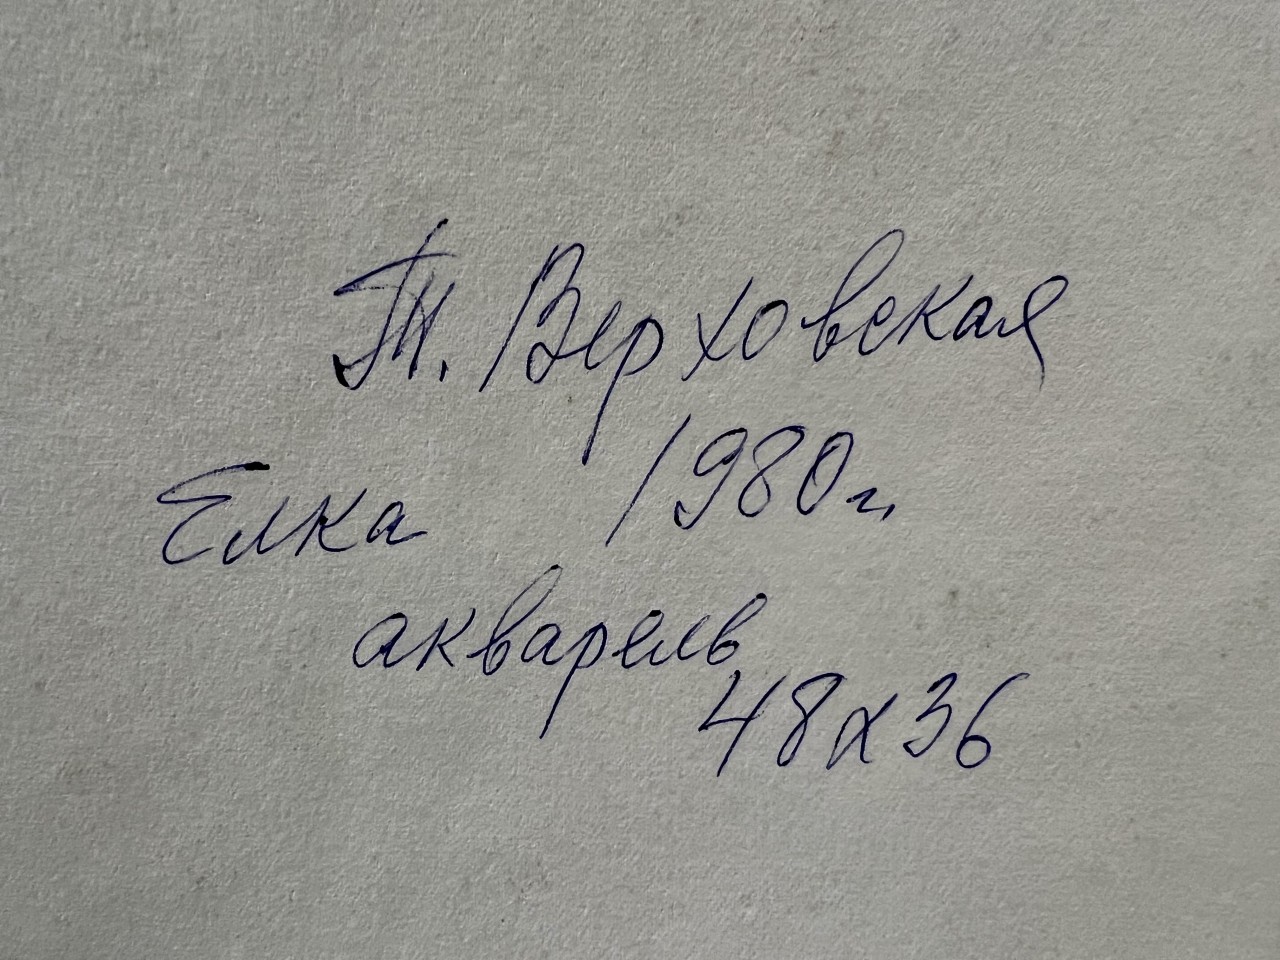 Т. Верховская
1980 г.
Елка
акварель
48х36